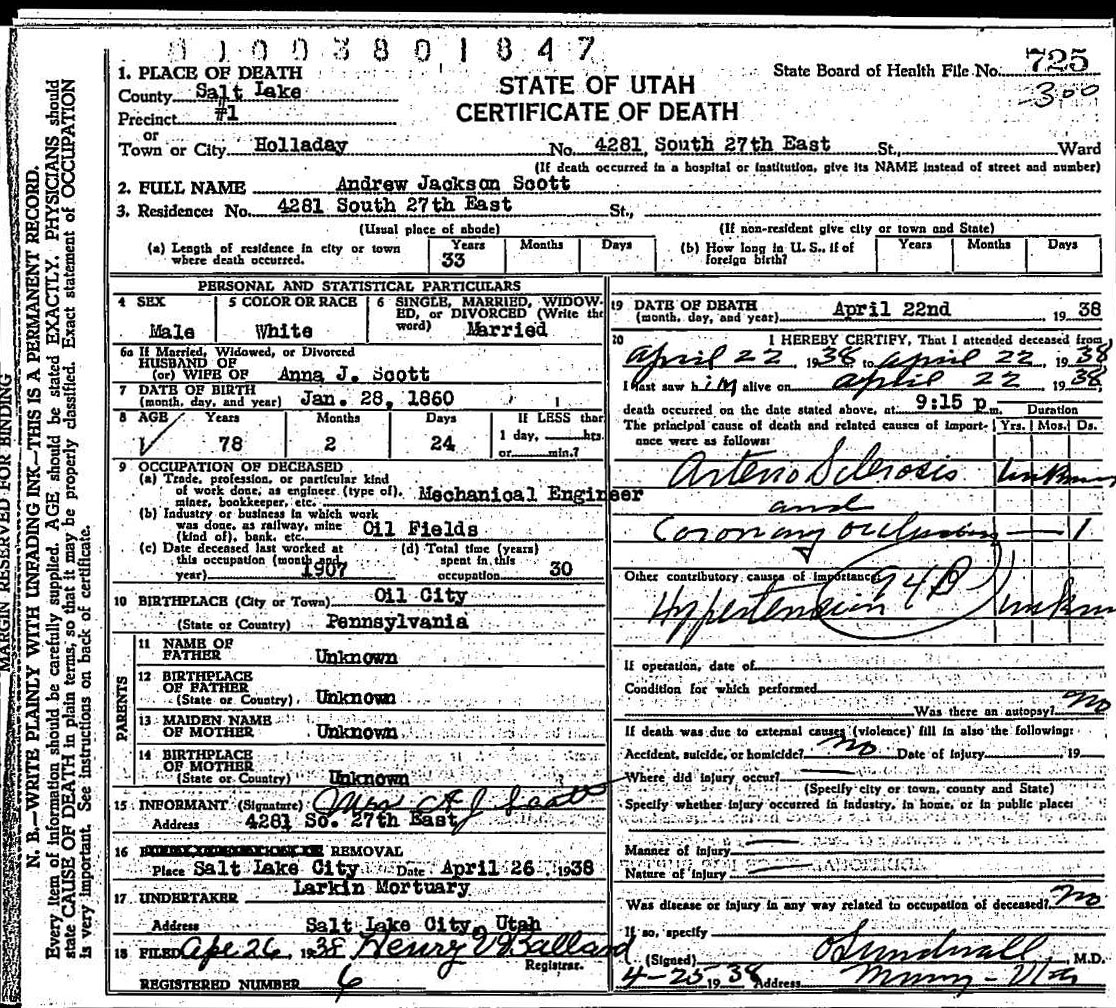 01003801847
1. PLACE OF DEATH
County Salt Lake
Precinct #1
or
Town or City Holladay No. 4281 South 27th East St., Ward
STATE OF UTAH
CERTIFICATE OF DEATH
State Board of Health File No. 725
300
(If death occurred in a hospital or institution, give its NAME instead of street and number)
2. FULL NAME Andrew Jackson Scott
3. Residence: No. 4281 South 27th East St.,
(Usual place of abode) (If non-resident give city or town and State)
(a) Length of residence in city or town where death occurred. Years 33 Months Days
(b) How long in U. S., if of foreign birth? Years Months Days
PERSONAL AND STATISTICAL PARTICULARS
4 SEX Male
5 COLOR OR RACE White
6 SINGLE, MARRIED, WIDOWED, or DIVORCED (Write the word) Married
6a If Married, Widowed, or Divorced
HUSBAND OF
(or) WIFE OF Anna J. Scott
7 DATE OF BIRTH
(month, day, and year) Jan. 28, 1860
8 AGE Years Months Days If LESS than
78 2 24 1 day, hrs.
or min.?
9 OCCUPATION OF DECEASED
(a) Trade, profession, or particular kind
of work done, as engineer (type of),
miner, bookkeeper, etc. Mechanical Engineer
(b) Industry or business in which work
was done, as railway, mine
(kind of), bank, etc. Oil Fields
(c) Date deceased last worked at
this occupation (month and
year) 1907
(d) Total time (years)
spent in this
occupation 30
10 BIRTHPLACE (City or Town) Oil City
(State or Country) Pennsylvania
PARENTS
11 NAME OF
FATHER Unknown
12 BIRTHPLACE
OF FATHER
(State or Country) Unknown
13 MAIDEN NAME
OF MOTHER Unknown
14 BIRTHPLACE
OF MOTHER
(State or Country) Unknown
15 INFORMANT (Signature) Mrs A J Scott
Address 4281 So. 27th East
16 REMOVAL
Place Salt Lake City Date April 26 1938
17 UNDERTAKER Larkin Mortuary
Address Salt Lake City, Utah
18 FILED Apr 26, 1938 Henry Ballard
Registrar.
REGISTERED NUMBER 6
19 DATE OF DEATH
(month, day, and year) April 22nd 1938
20 I HEREBY CERTIFY, That I attended deceased from
April 22 1938 to April 22, 1938
I last saw him alive on April 22 1938,
death occurred on the date stated above, at 9:15 p.m. Duration
The principal cause of death and related causes of importance were as follows: Yrs. Mos. Ds.
Arterio Sclerosis
and
Coronary occlusion 1
Other contributory causes of importance 94B
Hypertension
If operation, date of
Condition for which performed
Was there an autopsy? No
If death was due to external causes (violence) fill in also the following:
Accident, suicide, or homicide? No Date of Injury 19
Where did injury occur?
(Specify city or town, county and State)
Specify whether injury occurred in industry, in home, or in public place:
Manner of Injury
Nature of Injury
Was disease or injury in any way related to occupation of deceased? No
If so, specify
(Signed) Sundwall, M.D.
4-25 1938 Address
MARGIN RESERVED FOR BINDING
N. B.—WRITE PLAINLY WITH UNFADING INK—THIS IS A PERMANENT RECORD.
Every item of information should be carefully supplied. AGE should be stated EXACTLY. PHYSICIANS should
state CAUSE OF DEATH in plain terms, so that it may be properly classified. Exact statement of OCCUPATION
is very important. See instructions on back of certificate.